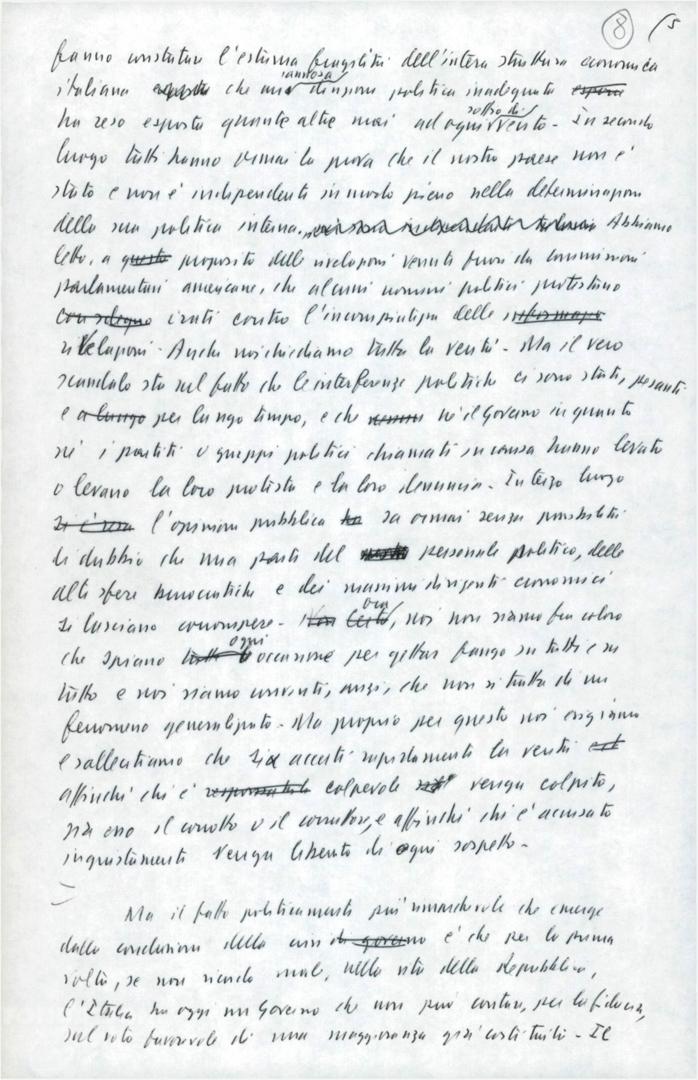 8 15
fanno constatare l'estrema fragilità dell'intera struttura economica
italiana che una annosa direzione politica inadeguata
ha reso esposta quante altre mai ad ogni soffio di vento - In secondo
luogo tutti hanno ormai la prova che il nostro paese non è
stato e non è indipendente in modo pieno nella determinazione
della sua politica interna. Abbiamo
letto, a questo proposito delle rivelazioni venute fuori da commissioni
parlamentari americane, che alcuni uomini politici protestano
con sdegno irati contro l'incompiutezza delle informazio
rivelazioni - Anche noi chiediamo tutta la verità - Ma il vero
scandalo sta sul fatto che le interferenze politiche ci sono state, pesanti
e a lungo per lungo tempo, e che nessun nè il Governo in quanto
nè i partiti o gruppi politici chiamati in causa hanno levato
o levano la loro protesta e la loro denuncia - In terzo luogo
si è resa l'opinione pubblica ha sa ormai senza possibilità
di dubbio che una parte del personale politico, delle
alte sfere burocratiche e dei massimi dirigenti economici
si lasciano corrompere - Non Certo Ora, noi non siamo fra coloro
che spiano ogni occasione per gettar fango su tutti e su
tutto e noi siamo convinti, anzi, che non si tratta di un
fenomeno generalizzato - Ma proprio per questo noi esigiamo
e sollecitiamo che si accerti rapidamente la verità
affinchè chi è responsabile colpevole venga colpito,
sia esso il corrotto o il corruttore, e affinchè chi è accusato
ingiustamente venga liberato di ogni sospetto -
Ma il fatto politicamente più rimarchevole che emerge
dalla conclusione della crisi di governo è che per la prima
volta, se non ricordo male, nella vita della Repubblica,
l'Italia ha oggi un Governo che non può contare, per la fiducia,
sul voto favorevole di una maggioranza già costituita - Il